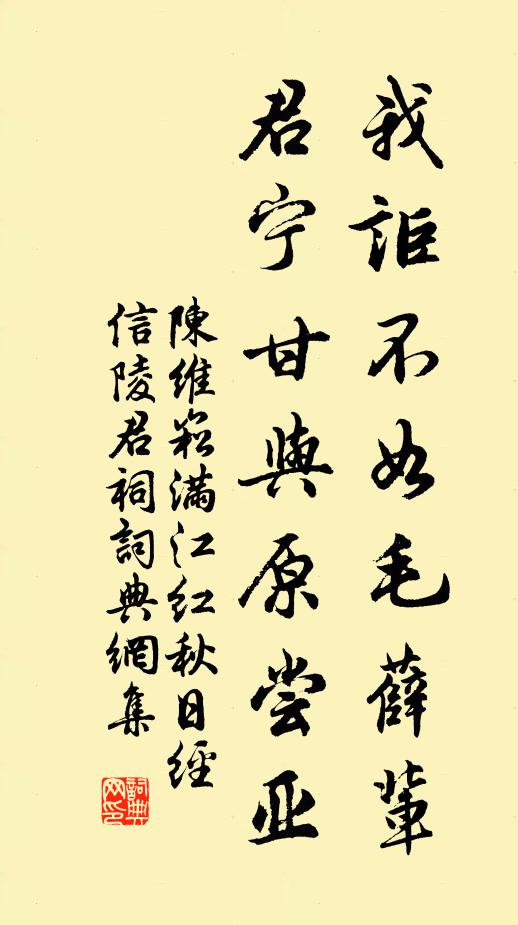 我詎不如毛薛輩
君宁甘與原尝亚
陳維崧滿江紅秋日經
信陵君祠詞典網集
詞典
网印